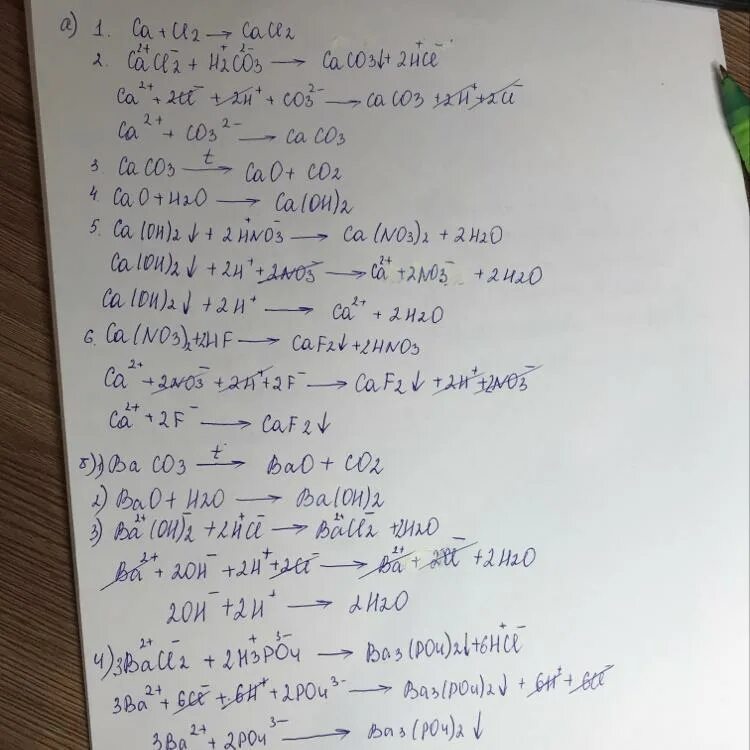 а) 1. Ca + Cl2 → CaCl2
2. Ca²⁺Cl⁻2 + H⁺2CO3²⁻ → CaCO3↓ + 2H⁺Cl⁻
Ca²⁺ + 2Cl⁻ + 2H⁺ + CO3²⁻ → CaCO3 + 2H⁺ + 2Cl⁻
Ca²⁺ + CO3²⁻ → CaCO3
3. CaCO3 →t CaO + CO2
4. CaO + H2O → Ca(OH)2
5. Ca(OH)2↓ + 2H⁺NO3⁻ → Ca(NO3)2 + 2H2O
Ca(OH)2↓ + 2H⁺ + 2NO3⁻ → Ca²⁺ + 2NO3⁻ + 2H2O
Ca(OH)2↓ + 2H⁺ → Ca²⁺ + 2H2O
6. Ca(NO3)2 + 2HF → CaF2↓ + 2HNO3
Ca²⁺ + 2NO3⁻ + 2H⁺ + 2F⁻ → CaF2↓ + 2H⁺ + 2NO3⁻
Ca²⁺ + 2F⁻ → CaF2↓
б) 1) BaCO3 →t BaO + CO2
2) BaO + H2O → Ba(OH)2
3) Ba²⁺(OH)⁻2 + 2H⁺Cl⁻ → Ba²⁺Cl⁻2 + 2H2O
Ba²⁺ + 2OH⁻ + 2H⁺ + 2Cl⁻ → Ba²⁺ + 2Cl⁻ + 2H2O
2OH⁻ + 2H⁺ → 2H2O
4) 3Ba²⁺Cl⁻2 + 2H⁺3PO4³⁻ → Ba3(PO4)2↓ + 6H⁺Cl⁻
3Ba²⁺ + 6Cl⁻ + 6H⁺ + 2PO4³⁻ → Ba3(PO4)2↓ + 6H⁺ + 6Cl⁻
3Ba²⁺ + 2PO4³⁻ → Ba3(PO4)2↓